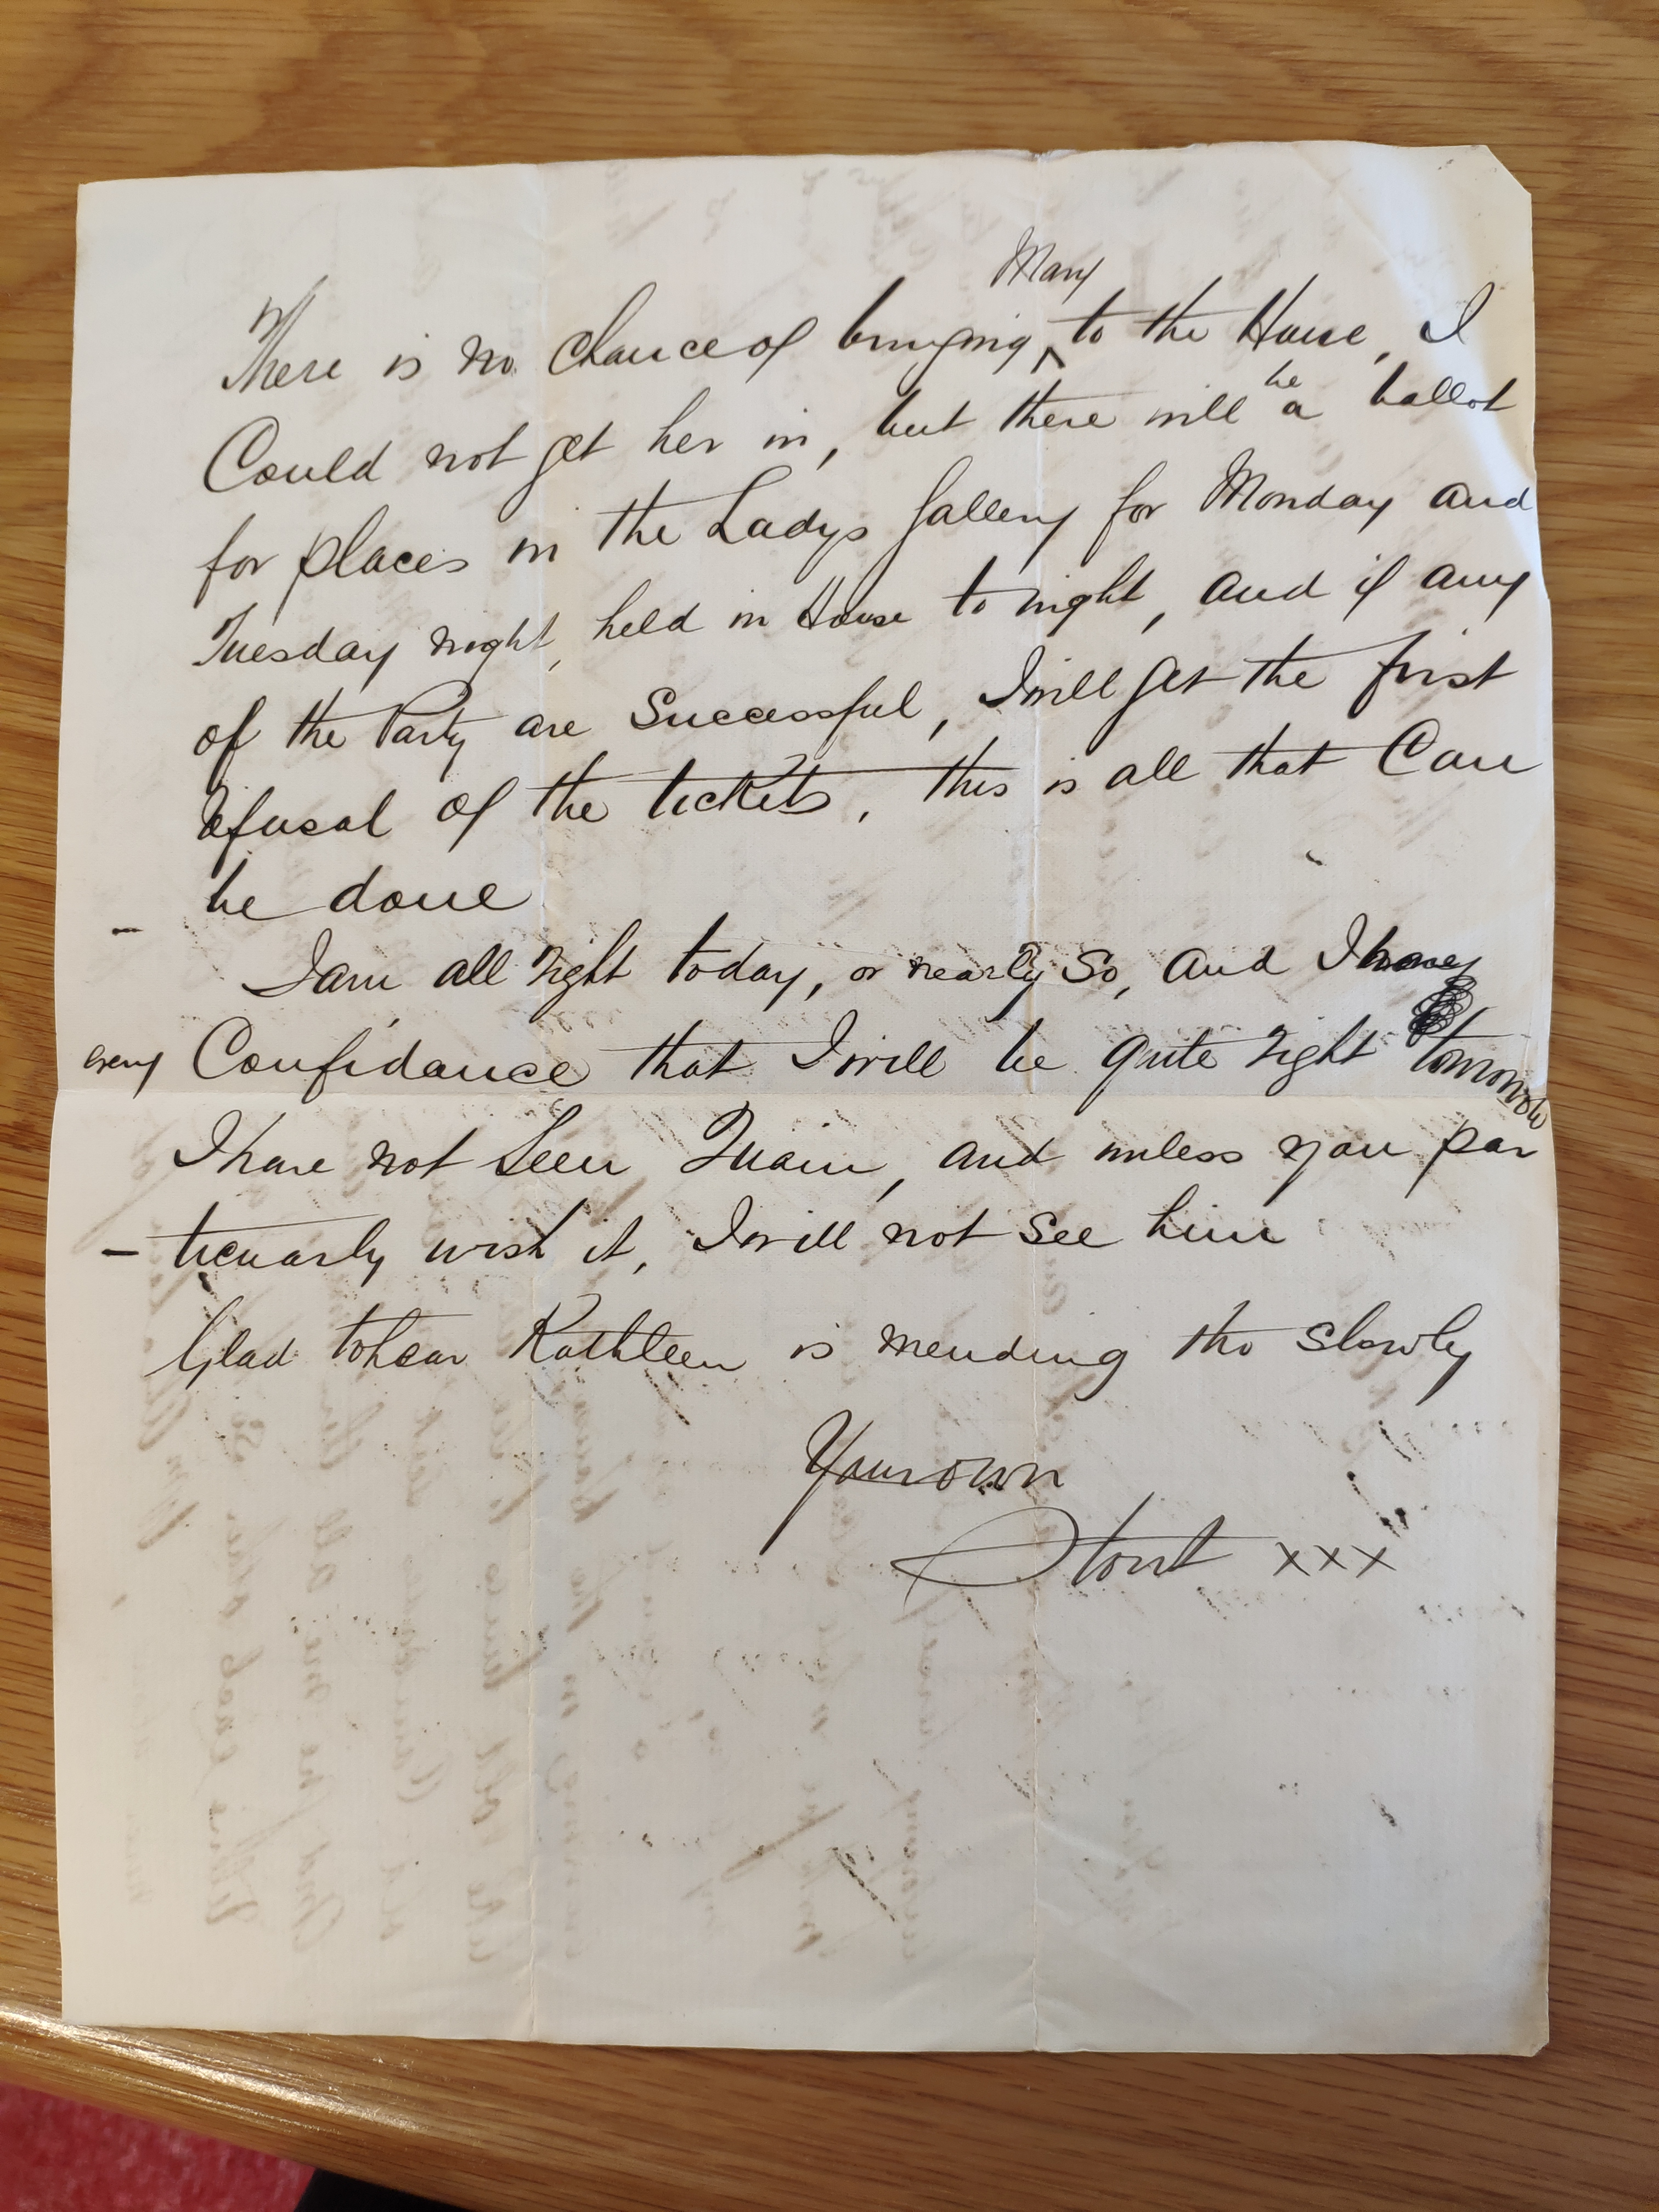 Mary
There is no chance of bringing ‸ to the House, I
be
Could not get her in, but there will a ballot
for places in the Ladys Gallery for Monday and
Tuesday night, held in House to night, and if any
of the Party are Successful, I will get the first
refusal of the tickets, this is all that Can
be done
I am all right today, or nearly So, and I have
every Confidance that I will be quite right tomorrow
I have not Seen Quain, and unless you par
- ticuarly wish it, I will not See him
Glad to hear Kathleen is mending tho slowly
Your own
xxx